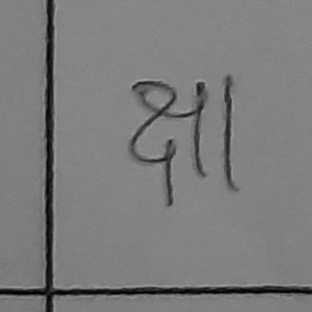 क्षा